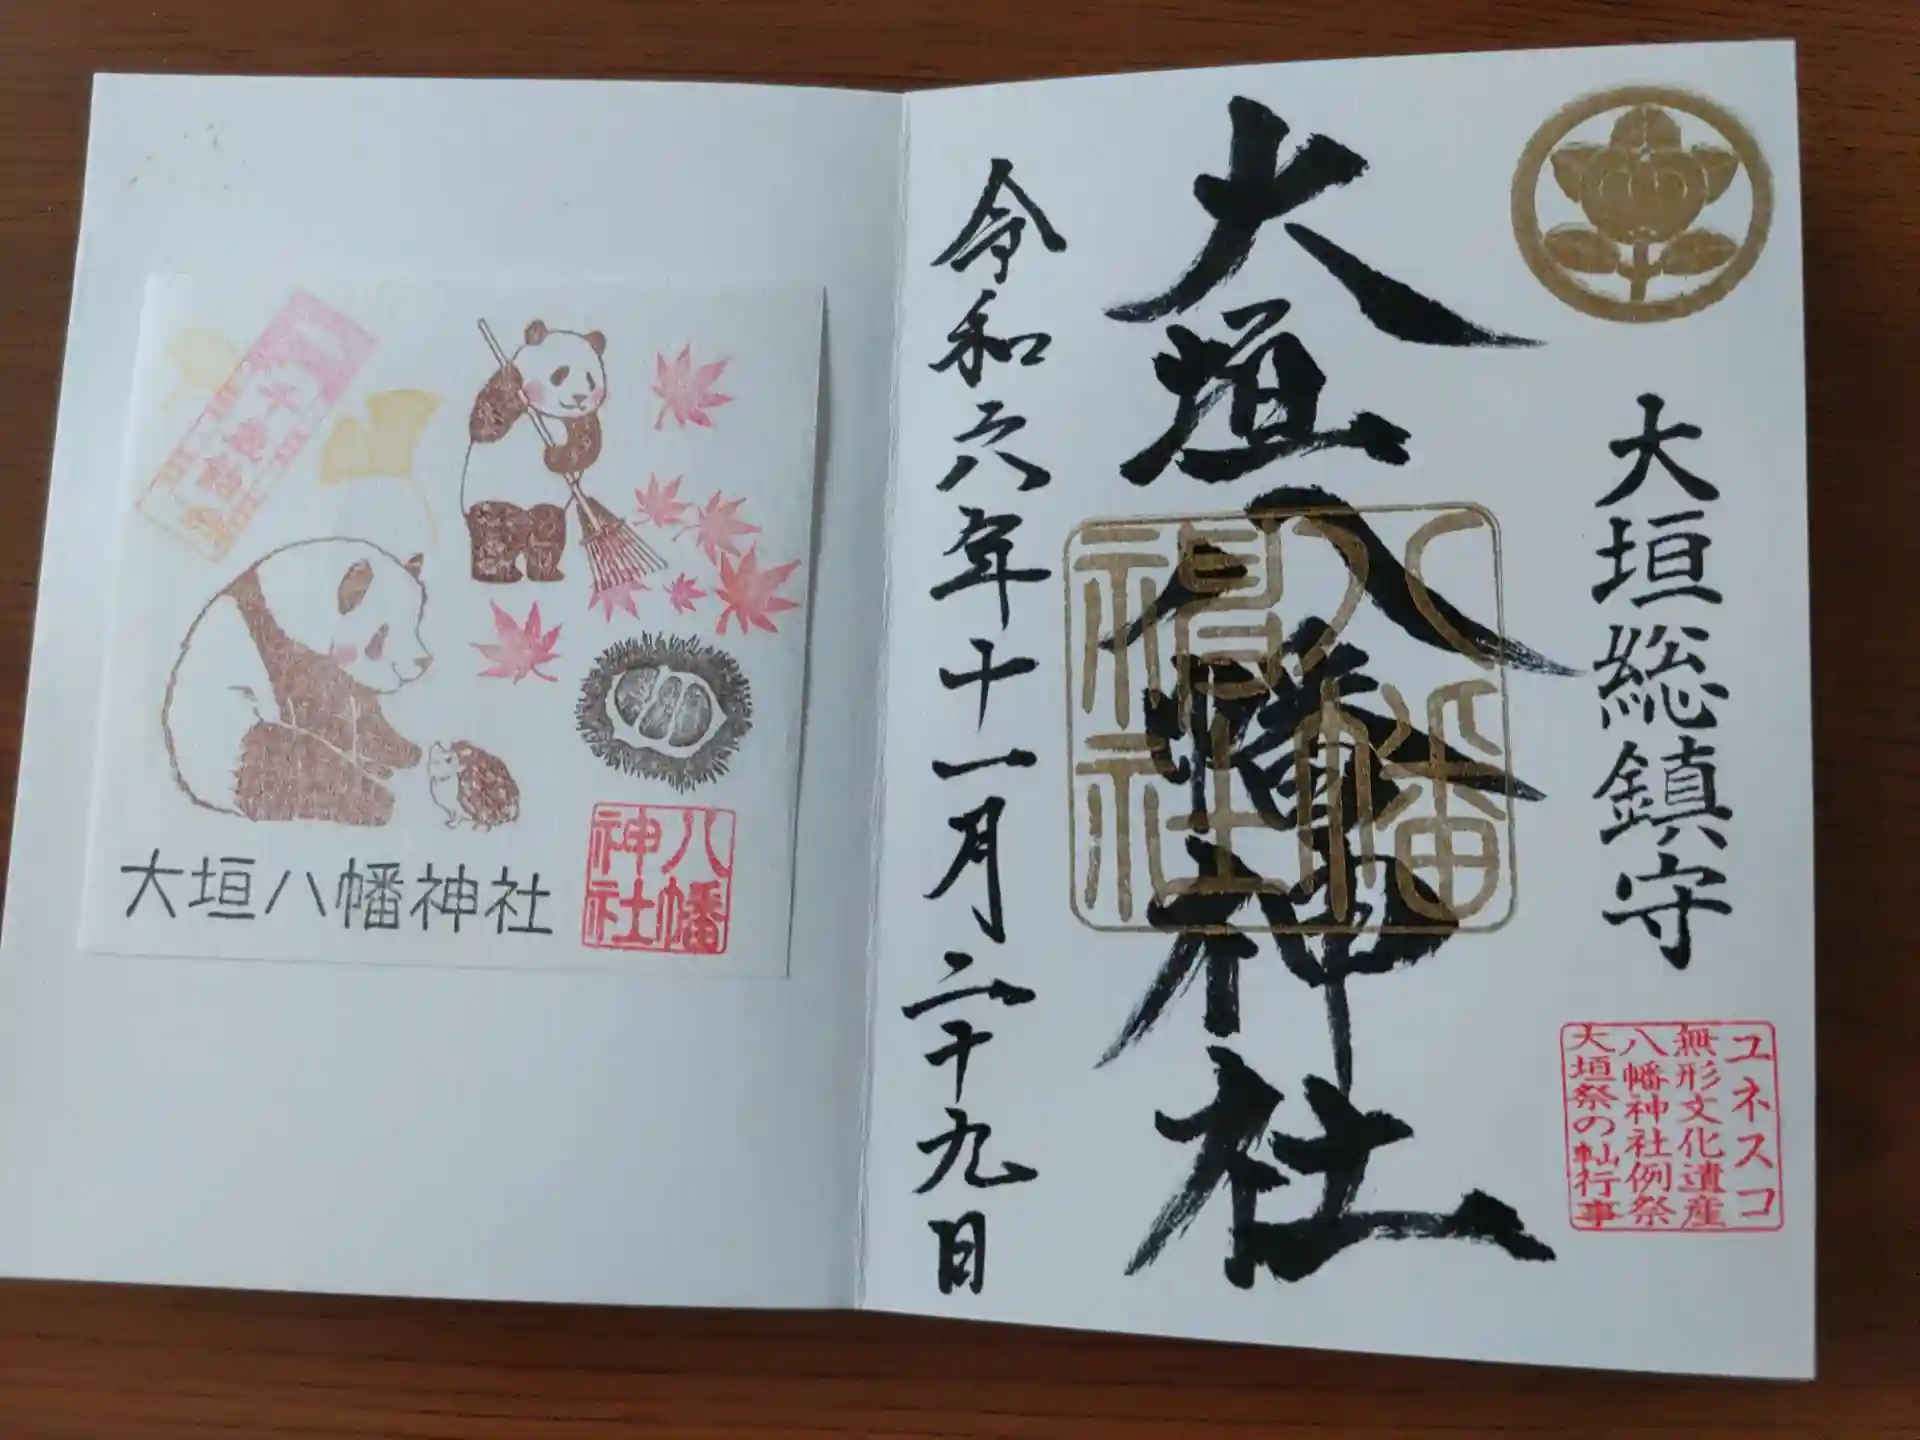 大垣総鎮守
ユネスコ
無形文化遺産
八幡神社例祭
大垣祭の軕行事
大垣八幡神社
八幡
神社
令和六年十一月二十九日
大垣八幡神社
八幡
神社